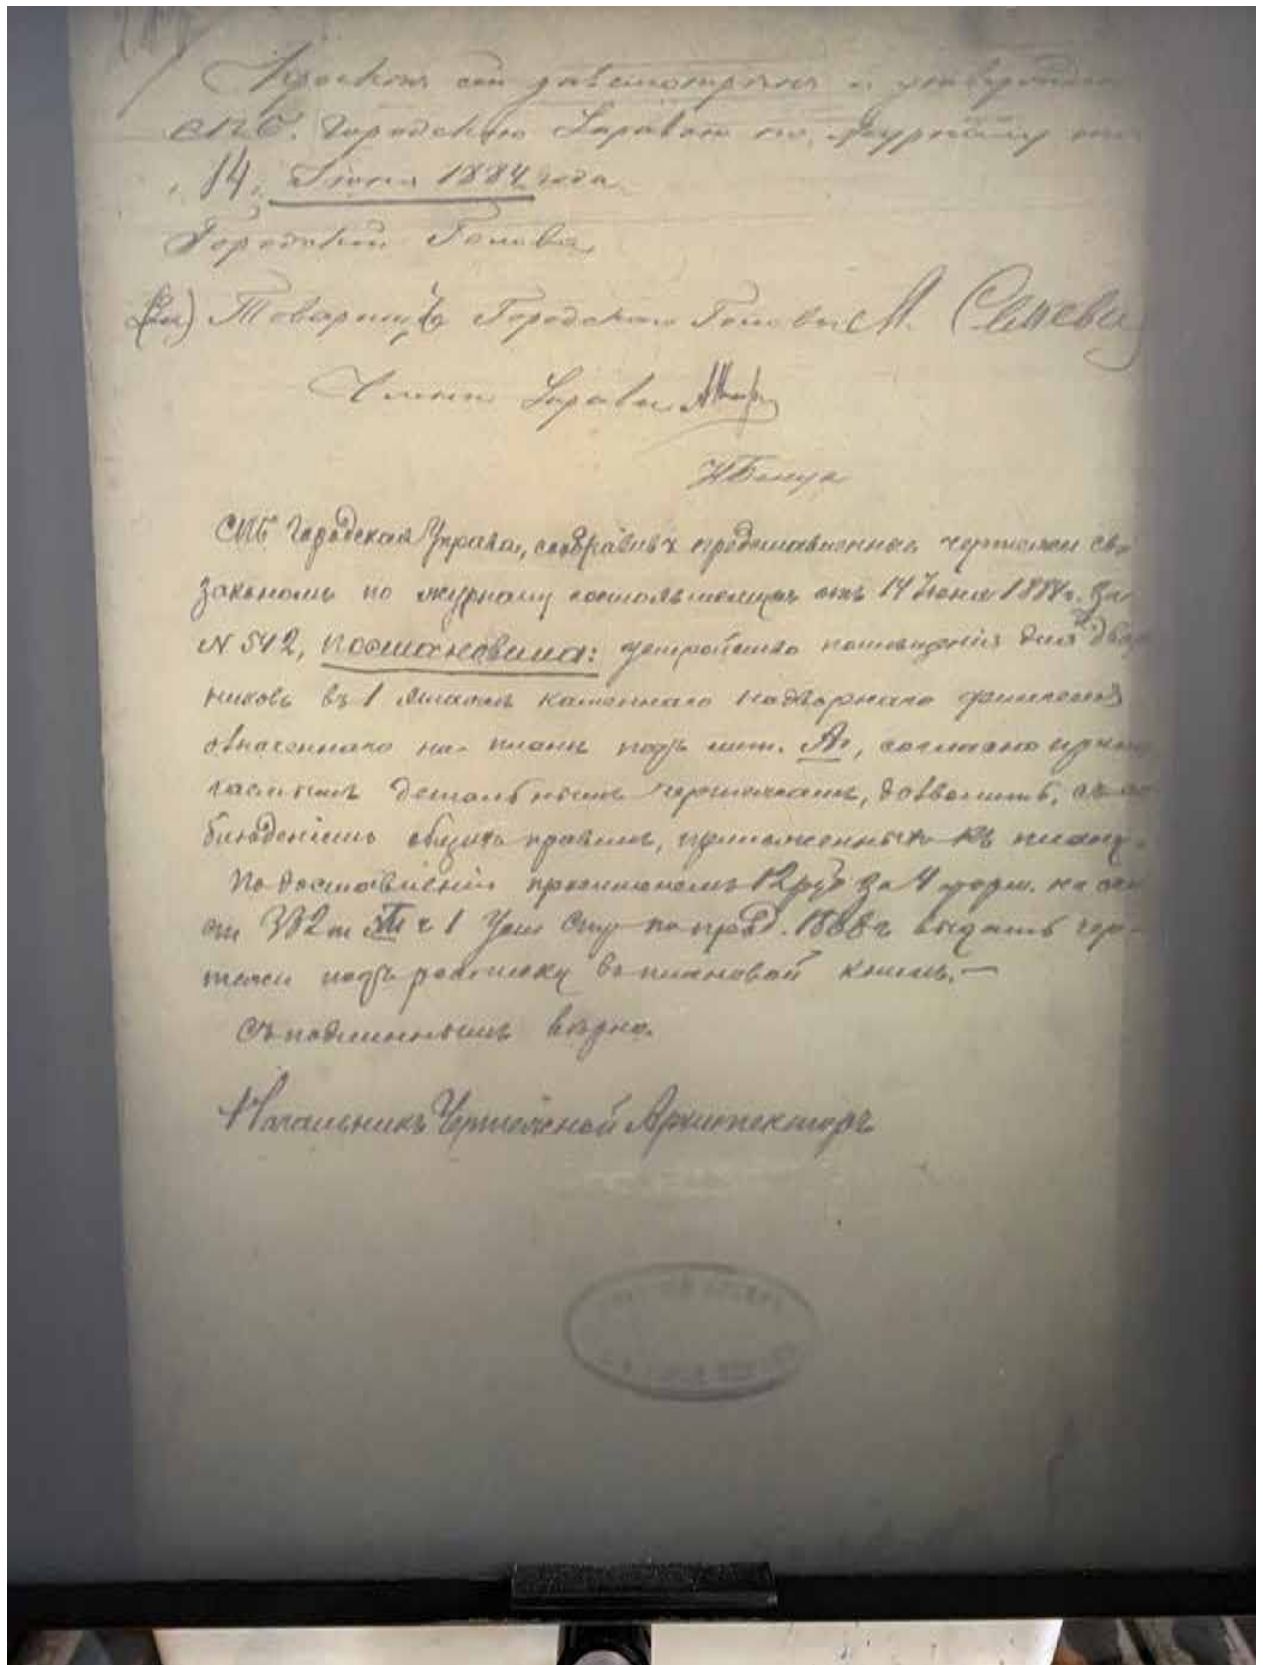 Проектъ сей разсмотрѣнъ и утвержденъ
СПб. Городскою Управою по журналу
14 Іюня 1884 года.
Городской Голова,
Товарищъ Городскаго Головы М.
Члены Управы
Н Бенуа
СПб Городская Управа, сообразивъ представленные чертежи съ
закономъ по журналу состоявшемуся отъ 14 Іюня 1884 г. за
N 542, постановила: устройство помѣщенія для двор
никовъ въ 1 этажѣ каменнаго надворнаго флигеля
означеннаго на планѣ подъ лит. А, согласно
детальнымъ чертежамъ, дозволить, съ со
блюденіемъ общихъ правилъ, приложенныхъ къ плану.
По доставленіи просителемъ 12 руб за 4 на осн
ст 332 т XII ч 1 Уст Стр по прод. 1868 г выдать чер-
тежи подъ росписку въ плановой книгѣ. —
Съ подлиннымъ вѣрно.
Начальникъ Чертежной Архитекторъ